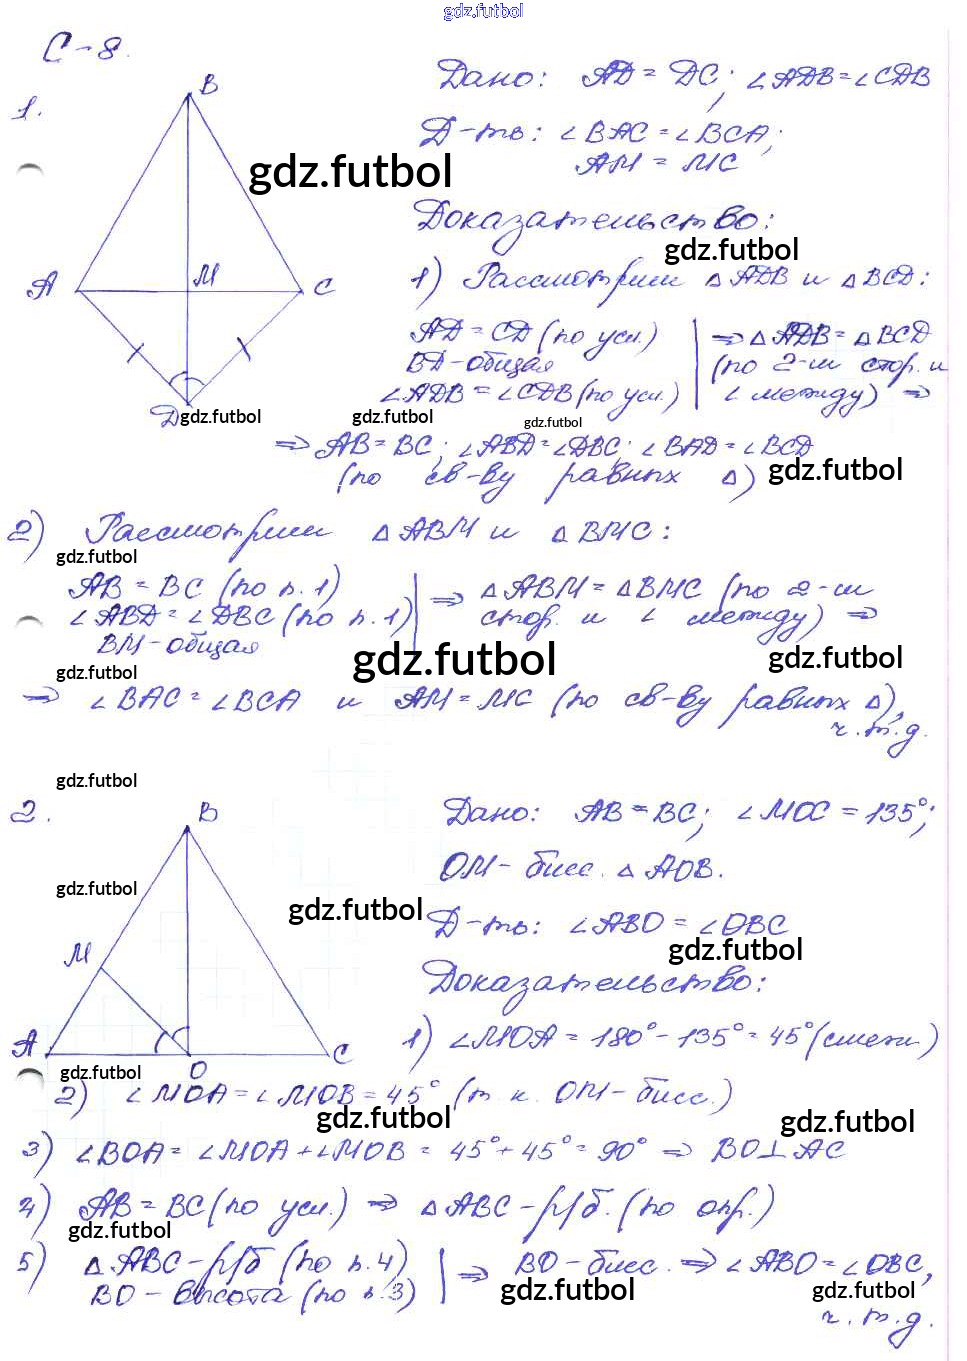 gdz.futbol
С-8.
1.
B
A
M
C
D
Дано: AD = DC; ∠ADB = ∠CDB
Д-ть: ∠BAC = ∠BCA;
AM = MC
gdz.futbol
Доказательство:
gdz.futbol
1) Рассмотрим △ADB и △BCD:
AD = CD (по усл.) | ⇒ △ADB = △BCD
BD - общая | (по 2-м стор. и
∠ADB = ∠CDB (по усл.) | ∠ между) ⇒
gdz.futbol gdz.futbol gdz.futbol
⇒ AB = BC; ∠ABD = ∠DBC; ∠BAD = ∠BCD
(по св-ву равных △)
gdz.futbol
2) Рассмотрим △ABM и △BMC:
gdz.futbol
AB = BC (по п.1) | ⇒ △ABM = △BMC (по 2-м
∠ABD = ∠DBC (по п.1) | стор. и ∠ между) ⇒
BM - общая
gdz.futbol gdz.futbol gdz.futbol
⇒ ∠BAC = ∠BCA и AM = MC (по св-ву равных △),
ч.т.д.
gdz.futbol
2.
B
M
A
O
C
Дано: AB = BC; ∠MOC = 135°;
OM - бисс. △AOB.
gdz.futbol gdz.futbol
Д-ть: ∠ABO = ∠OBC
gdz.futbol
Доказательство:
1) ∠MOA = 180° - 135° = 45° (смежн)
gdz.futbol
2) ∠MOA = ∠MOB = 45° (т.к. OM - бисс.)
gdz.futbol gdz.futbol
3) ∠BOA = ∠MOA + ∠MOB = 45° + 45° = 90° ⇒ BO⊥AC
4) AB = BC (по усл.) ⇒ △ABC - р/б. (по опр.)
gdz.futbol
5) △ABC - р/б (по п.4) | ⇒ BO - бисс. ⇒ ∠ABO = ∠OBC,
BO - высота (по п.3)
gdz.futbol gdz.futbol
ч.т.д.